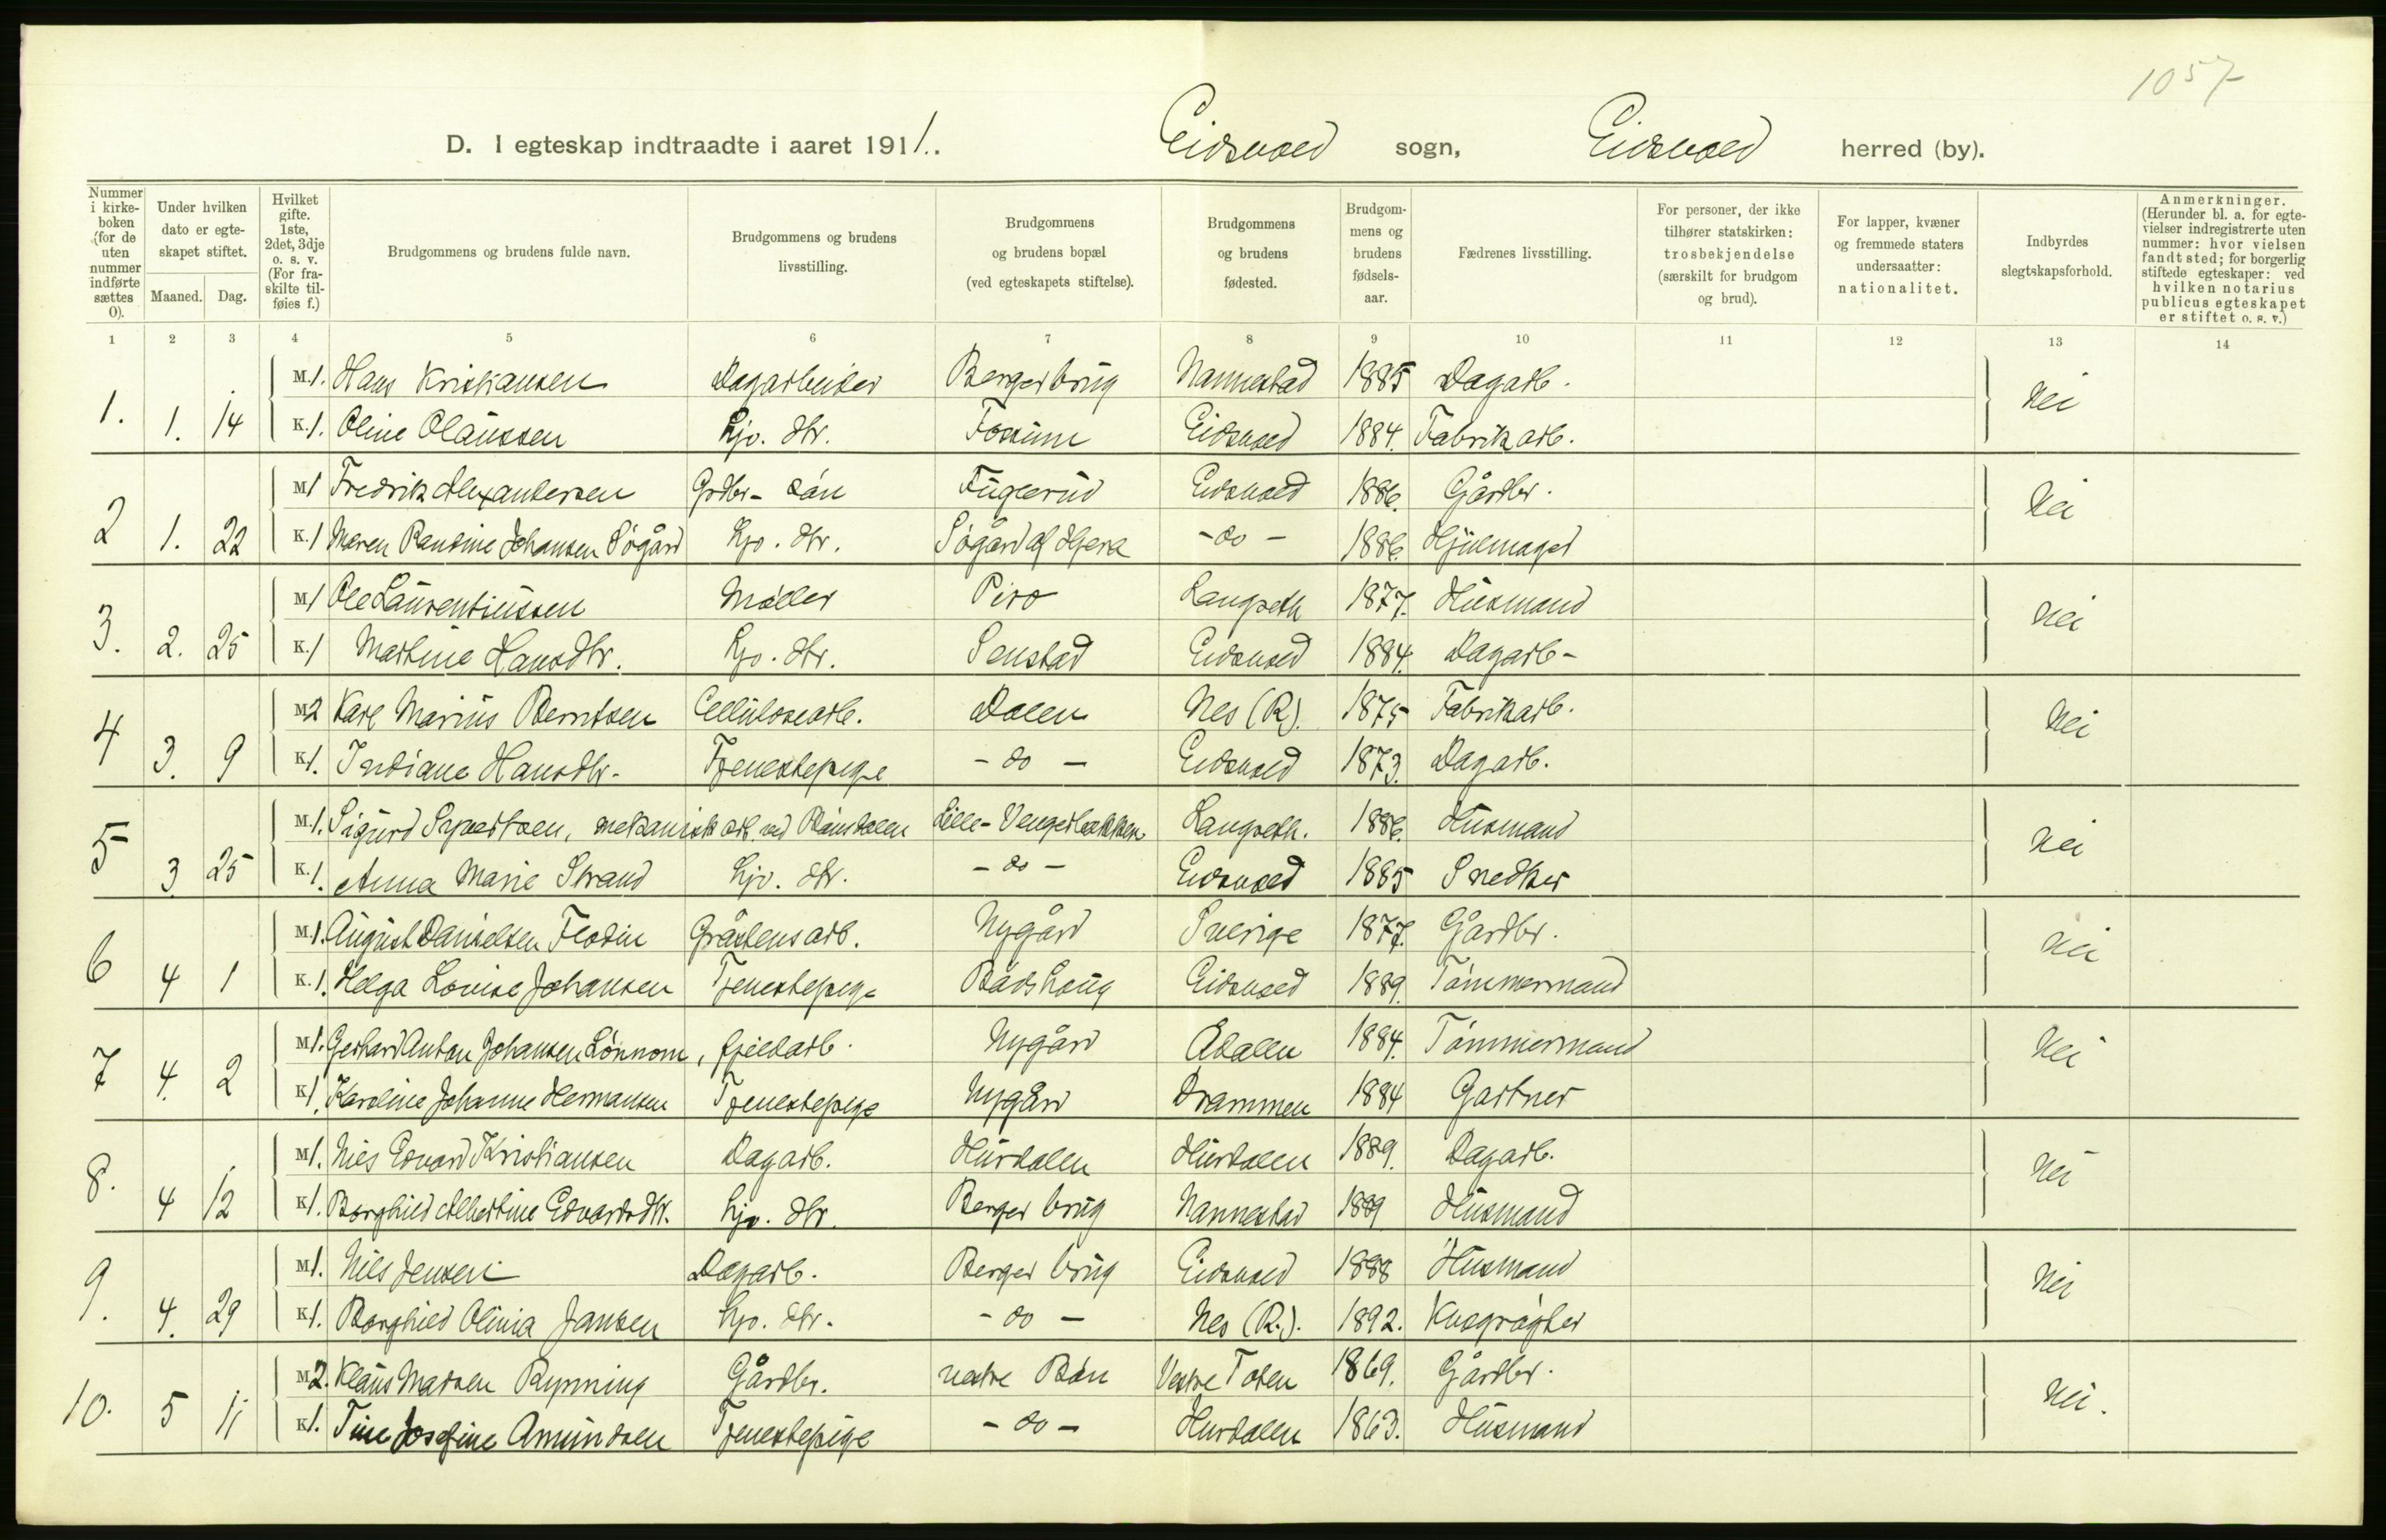 1057
D. I egteskap indtraadte i aaret 1911. Eidsvold sogn, Eidsvold herred (by).
Nummer i kirkeboken (for de uten nummer indførte sættes 0). Under hvilken dato er egteskapet stiftet. Maaned. Dag. Hvilket gifte. 1ste, 2det, 3dje o. s. v. (For fraskilte tilføies f.) Brudgommens og brudens fulde navn. Brudgommens og brudens livsstilling. Brudgommens og brudens bopæl (ved egteskapets stiftelse). Brudgommens og brudens fødested. Brudgommens og brudens fødselsaar. Fædrenes livsstilling. For personer, der ikke tilhører statskirken: trosbekjendelse (særskilt for brudgom og brud). For lapper, kvæner og fremmede staters undersaatter: nationalitet. Indbyrdes slegtskapsforhold. Anmerkninger. (Herunder bl. a. for egtevielser indregistrerte uten nummer: hvor vielsen fandt sted; for borgerlig stiftede egteskaper: ved hvilken notarius publicus egteskapet er stiftet o. s. v.)
1 2 3 4 5 6 7 8 9 10 11 12 13 14
M.1. Hans Kristiansen Dagarbeider Berger brug Nannestad 1885 Dagarb.
1. 1. 14 K.1. Oline Olaussen Hjv. dtr. Fossum Eidsvold 1884. Fabrikarb. Nei
M1 Fredrik Alexandersen Grdbr- søn Fuglerud Eidsvold 1886. Gårdbr.
2 1. 22 K.1 Maren Paudine Johansen Søgård Hjv. dtr. Søgård af -do- 1886. Hjulmager Nei
M1 Ole Laurentiussen Møller Piro Langseth 1877. Husmand
3. 2. 25 K.1 Martine Hansdtr. Hjv. dtr. Senstad Eidsvold 1884. Dagarb- Nei
M2 Karl Marius Berntsen Cellulosearb. Dalen Nes (R). 1875 Fabrikarb.
4 3. 9 K1. Indiane Hansdtr. Tjenestepige - do - Eidsvold 1873. Dagarb. Nei
M.1. Sigurd Syvertsen, mekanisk arb. ved Bönsdalen Lille-Vengerbækken Langseth. 1886. Husmand
5 3 25 K.1. Anna Marie Strand Hjv. dtr. - do - Eidsvold 1885 Snedker Nei
M.1. August Danielsen Flodin Gråstensarb. Nygård Sverige 1877. Gårdbr.
6 4 1 K.1. Helga Lovise Johansen Tjenestepige Bådshaug Eidsvold 1889. Tømmermand Nei
M1. Gerhard Anton Johansen Lönnom, fjeldarb. Nygård Ådalen 1884. Tømmermand
7 4. 2 K1. Karoline Johanne Hermansen Tjenestepige Nygård Drammen 1884 Gartner Nei
M1. Nils Edvard Kristiansen Dagarb. Hurdalen Hurdalen 1889. Dagarb.
8. 4 12 K1. Borghild Albertine Edvardsdtr. Hjv. dtr. Berger brug Nannestad 1889 Husmand Nei
M1. Nils Jensen Dagarb. Berger brug Eidsvold 1888 Husmand
9. 4. 29 K1. Borghild Olivia Jansen Hjv. dtr. - do - Nes (R.). 1892. Nei
M2. Klaus Madsen Rynning Gårdbr. vestre Bøn Vestre Toten 1869. Gårdbr.
10. 5 11 K1. Tine Josefine Amundsen Tjenestepige - do - Hurdalen 1863. Husmand Nei.